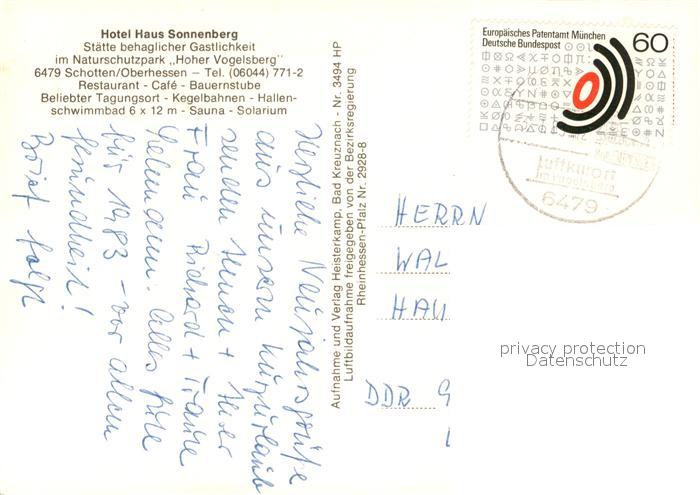 Hotel Haus Sonnenberg
Stätte behaglicher Gastlichkeit
im Naturschutzpark „Hoher Vogelsberg"
6479 Schotten/Oberhessen – Tel. (06044) 771-2
Restaurant - Café - Bauernstube
Beliebter Tagungsort - Kegelbahnen - Hallen-
schwimmbad 6 x 12 m - Sauna - Solarium
Herzliche Neujahrsgrüße
aus unserm Kurzurlaub
senden Ihnen + Ihrer
Frau Richard + Traute
Alles Gute
für 1983 - vor allem
Gesundheit!
Brief folgt
Aufnahme und Verlag Heisterkamp, Bad Kreuznach - Nr. 3494 HP
Luftbildaufnahme freigegeben von der Bezirksregierung
Rheinhessen-Pfalz Nr. 2928-8
Europäisches Patentamt München
Deutsche Bundespost
60
Luftkurort
im Vogelsberg
6479
HERRN
WAL
HAU
DDR 9
1
privacy protection
Datenschutz